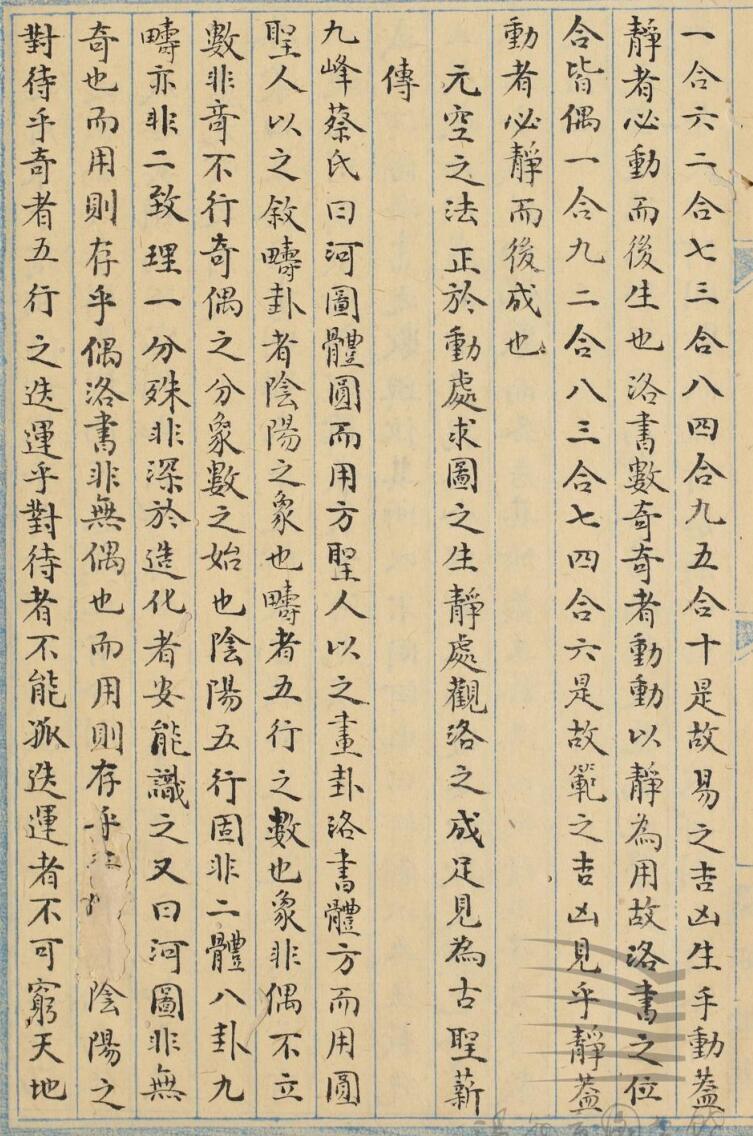 一合六二合七三合八四合九五合十是故易之吉凶生乎動蓋
靜者必動而後生也洛書數奇奇者動動以靜為用故洛書之位
合皆偶一合九二合八三合七四合六是故範之吉凶見乎靜蓋
動者必靜而後成也
元空之法正於動處求圖之生靜處觀洛之成足見為古聖薪
傳
九峰蔡氏曰河圖體圓而用方聖人以之畫卦洛書體方而用圓
聖人以之敘疇卦者陰陽之象也疇者五行之數也象非偶不立
數非竒不行奇偶之分象數之始也陰陽五行固非二體八卦九
疇亦非二致理一分殊非深於造化者安能識之又曰河圖非無
奇也而用則存乎偶洛書非無偶也而用則存乎陰陽之
對待乎奇者五行之迭運乎對待者不能孤迭運者不可窮天地